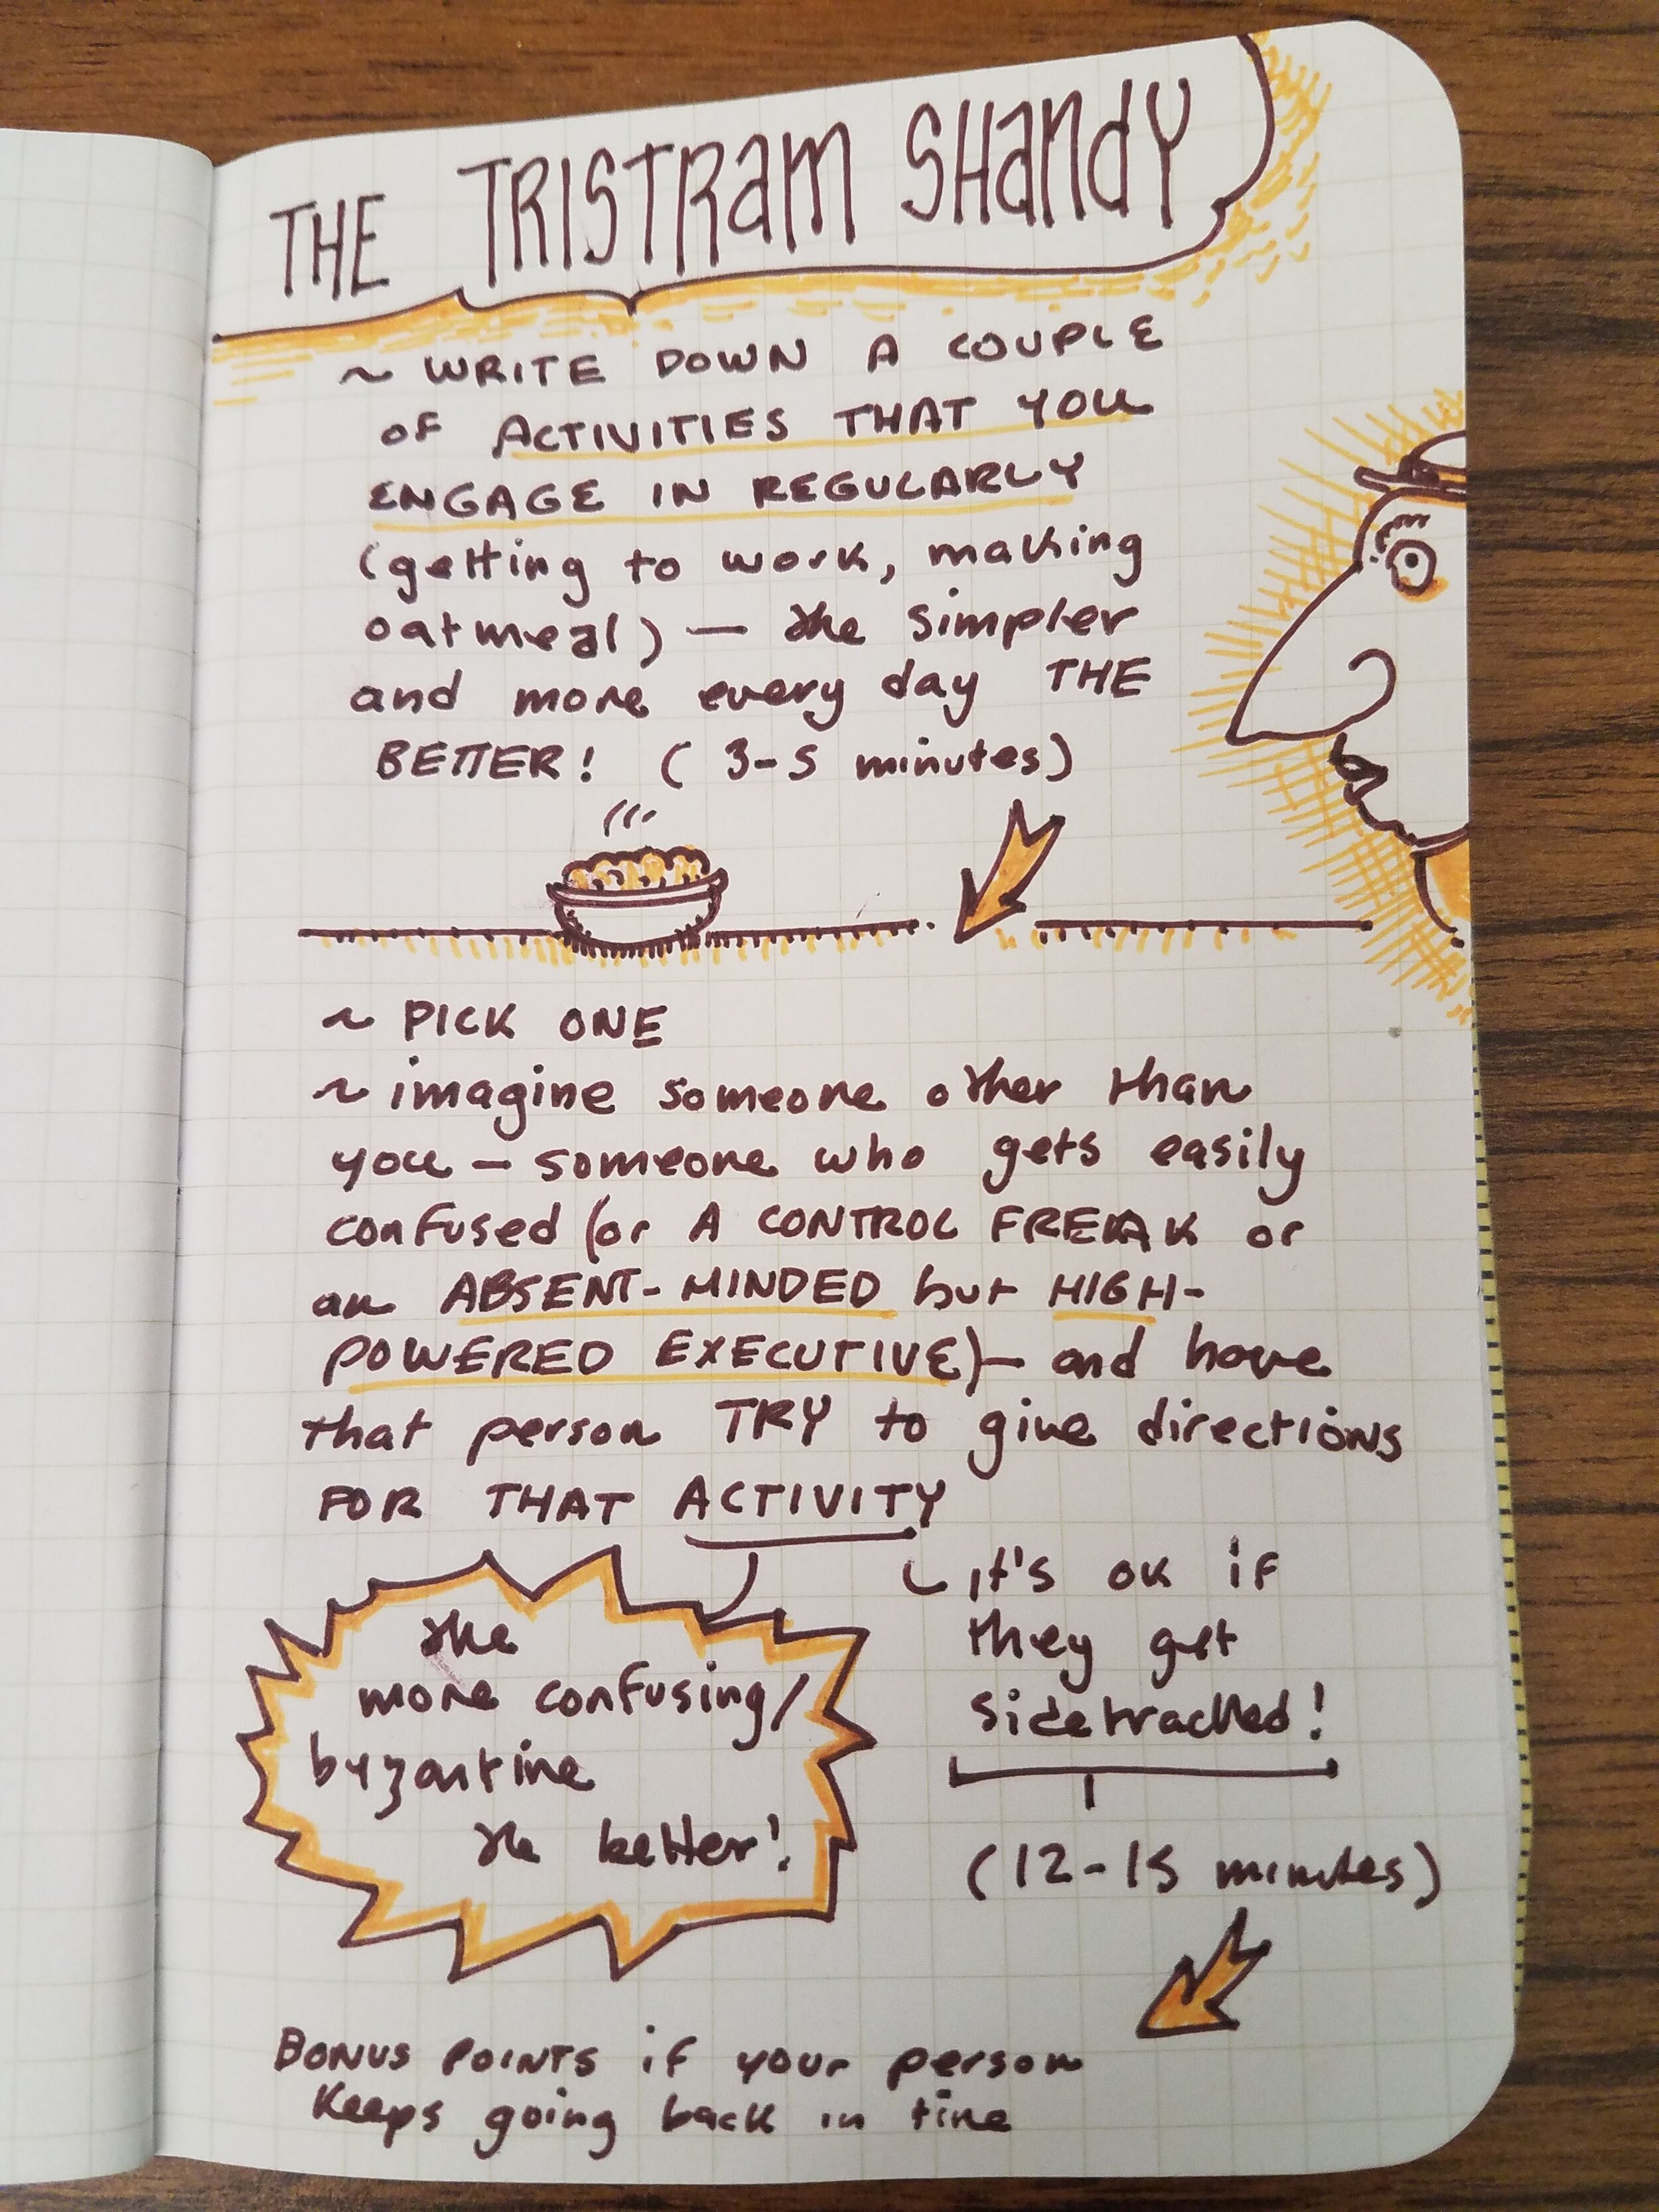 THE TRISTRam SHandY
~ WRITE DOWN A COUPLE
OF ACTIVITIES THAT YOU
ENGAGE IN REGULARLY
(getting to work, making
oatmeal) — the simpler
and more every day THE
BETTER! (3-5 minutes)
~ PICK ONE
~ imagine someone other than
you — someone who gets easily
confused (or A CONTROL FREAK or
an ABSENT-MINDED but HIGH-
POWERED EXECUTIVE) — and have
that person TRY to give directions
FOR THAT ACTIVITY
the
more confusing/
byzantine
the better!
it's ok if
they get
sidetracked!
(12-15 minutes)
BONUS POINTS if your person
Keeps going back in time